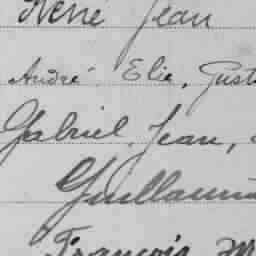 René Jean
André. Elie, Gust
Gabriel, Jean,
Guillaume
François